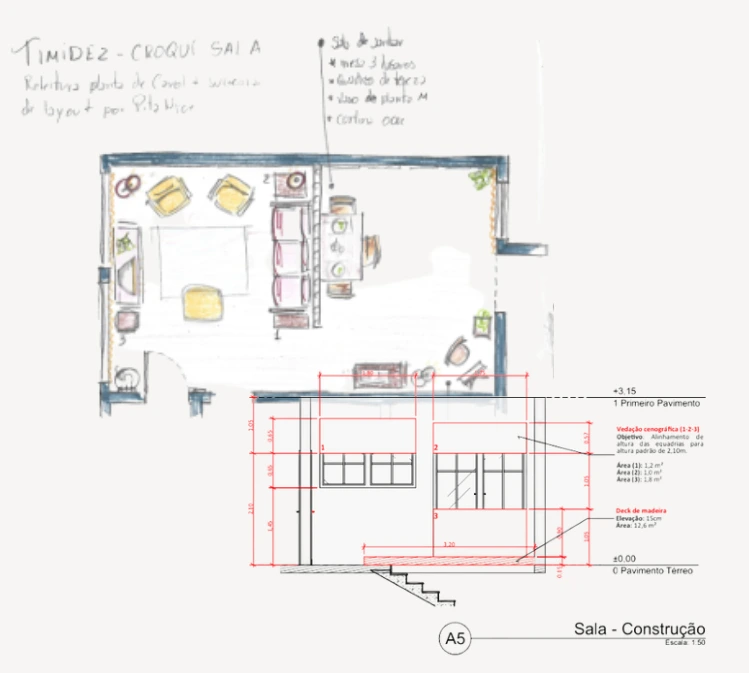 TIMIDEZ - CROQUI SALA
Releitura planta de Carol +
de layout por Rita Nico
Sala de jantar
* mesa 3 lugares
* Quadros de terça
* Vaso de planta M
* Cortina ocre
2
3
1
+3.15
1 Primeiro Pavimento
Vedação cenográfica (1-2-3)
Objetivo: Alinhamento de
altura das equadrias para
altura padrão de 2,10m.
Área (1): 1,2 m²
Área (2): 1,0 m²
Área (3): 1,8 m²
1
2
3
Deck de madeira
Elevação: 15cm
Área: 12,6 m²
±0.00
0 Pavimento Térreo
A5
Sala - Construção
Escala: 1:50